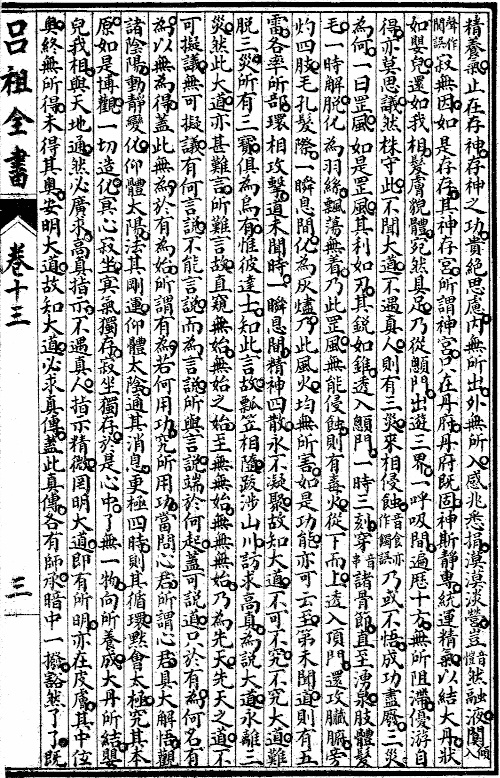 精養氣止在存神存神之功貴絶思慮内無所出外無所入感兆悉捐漠漠淡營豈音愷然融液闃
聲作聞誤寂無因如是存存其神存宫所謂神宫只在丹府丹府既固神斯靜專統運精氣以結大丹狀
如嬰兒還如我相髮膚貌體宛然具足乃從顖門出遊三界一呼吸間遍厯十方無所阻滯優游自
得亦莫思議然株守此不聞大道不遇真人則有三災來相侵蝕音食亦作蠲誤乃或不悟成功盡廢三災
為何一曰罡風如是罡風其利如刃其銳如錐透入顖門一時三刻穿音串諸骨節直至湧泉肢體髮
毛一時解脫化為羽絲飄蕩無着乃此罡風無能侵蝕則有毒火從下而上透入頂門還攻臟腑旁
灼四肢毛孔髮際一瞬息間化為灰燼乃此風火均無所害如是功能亦可云至第未聞道則有五
雷各率所部環相攻擊道未聞時一瞬息間精神四散永不凝聚故知大道不可不究不究大道難
脫三災所有三寶俱為烏有惟彼達士知此言故瓢笠相隨跋涉山川訪求高真為說大道永離三
災然此大道亦甚難言所難言故直窺無始無始之始至無無始無無無始乃為先天先天之道不
可擬議無可擬議有何言說不能言說而為言說所與言說端於何起蓋可說道只於有為何名有
為以無為得蓋此無為於有為始所謂有為若何用功究所用功當問心君所謂心君具大解悟觀
諸陰陽動靜變化仰體太陽法其剛運仰體太陰通其消息更極四時則其循環點會太極究其本
原如是博觀一切造化冥心寂坐冥氣獨存寂坐獨存於是心中了無一物向所養成大丹所結嬰
兒我相與天地通然必廣求高真指示不遇真人指示精微罔明大道即有所明亦在皮膚其中位
奧終無所得未得其奥安明大道故知大道必求真傳蓋此真傳各有師承暗中一撥豁然了了既
吕祖全書
卷十三
三